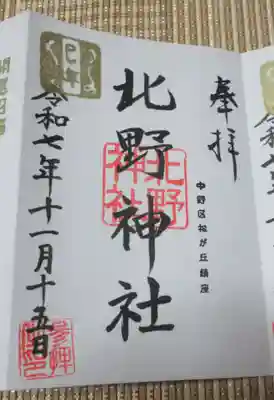 奉拝
中野区松が丘鎮座
北野神社
北野
神社
巳年
令和七年十一月十五日